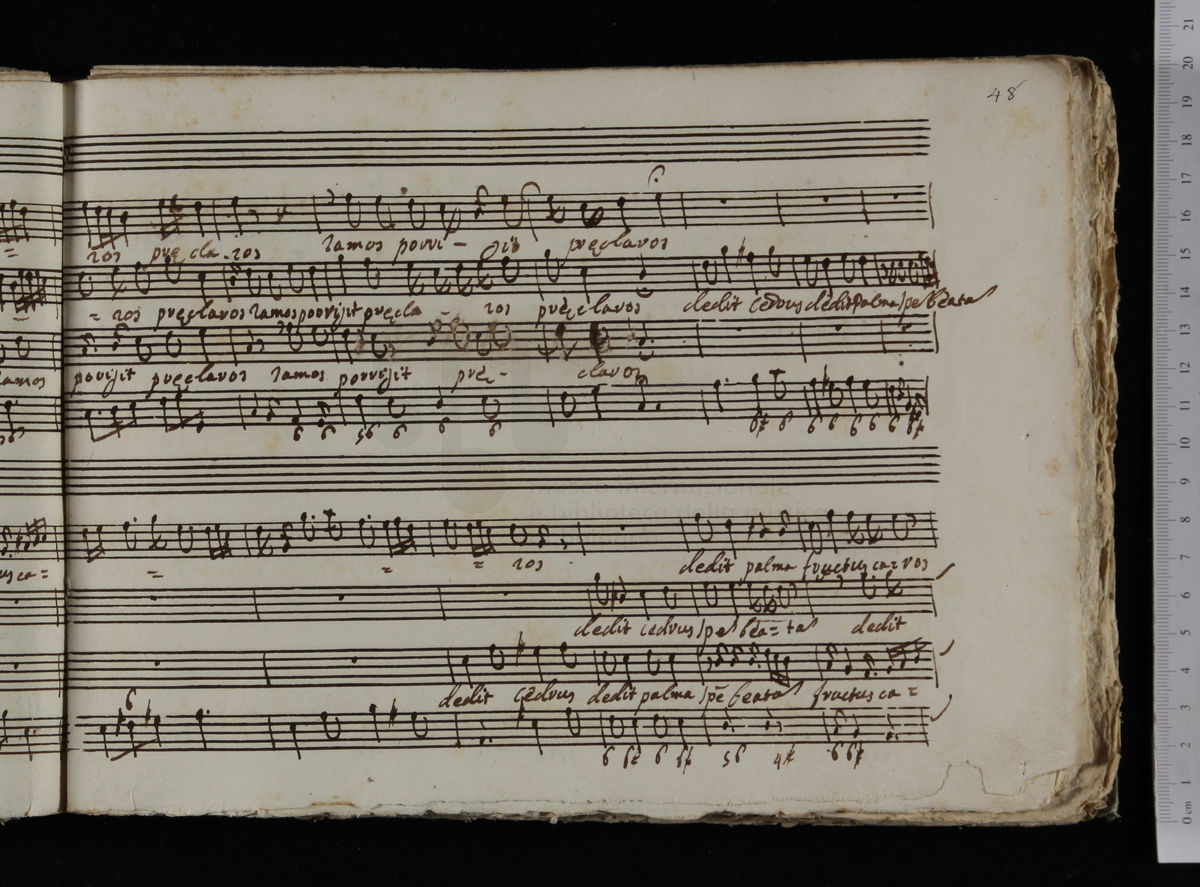 48
ros preçla-ros ramos porri- git preçlaros
= ros preçlaros ramos porrigit preçla - ros preçlaros dedit cedrus dedit palma spe beata
ramos porrigit preçlaros ramos porrigit preç- claros
6 6 56 6 6 6 6 6 6 6 6 6
= = = ros dedit palma fructus caros
dedit cedrus spe bea=ta dedit
dedit cedrus dedit palma spe beata fructus ca=
6
6 6 6 6 56 4 6 6
museo internazionale
e biblioteca della musica